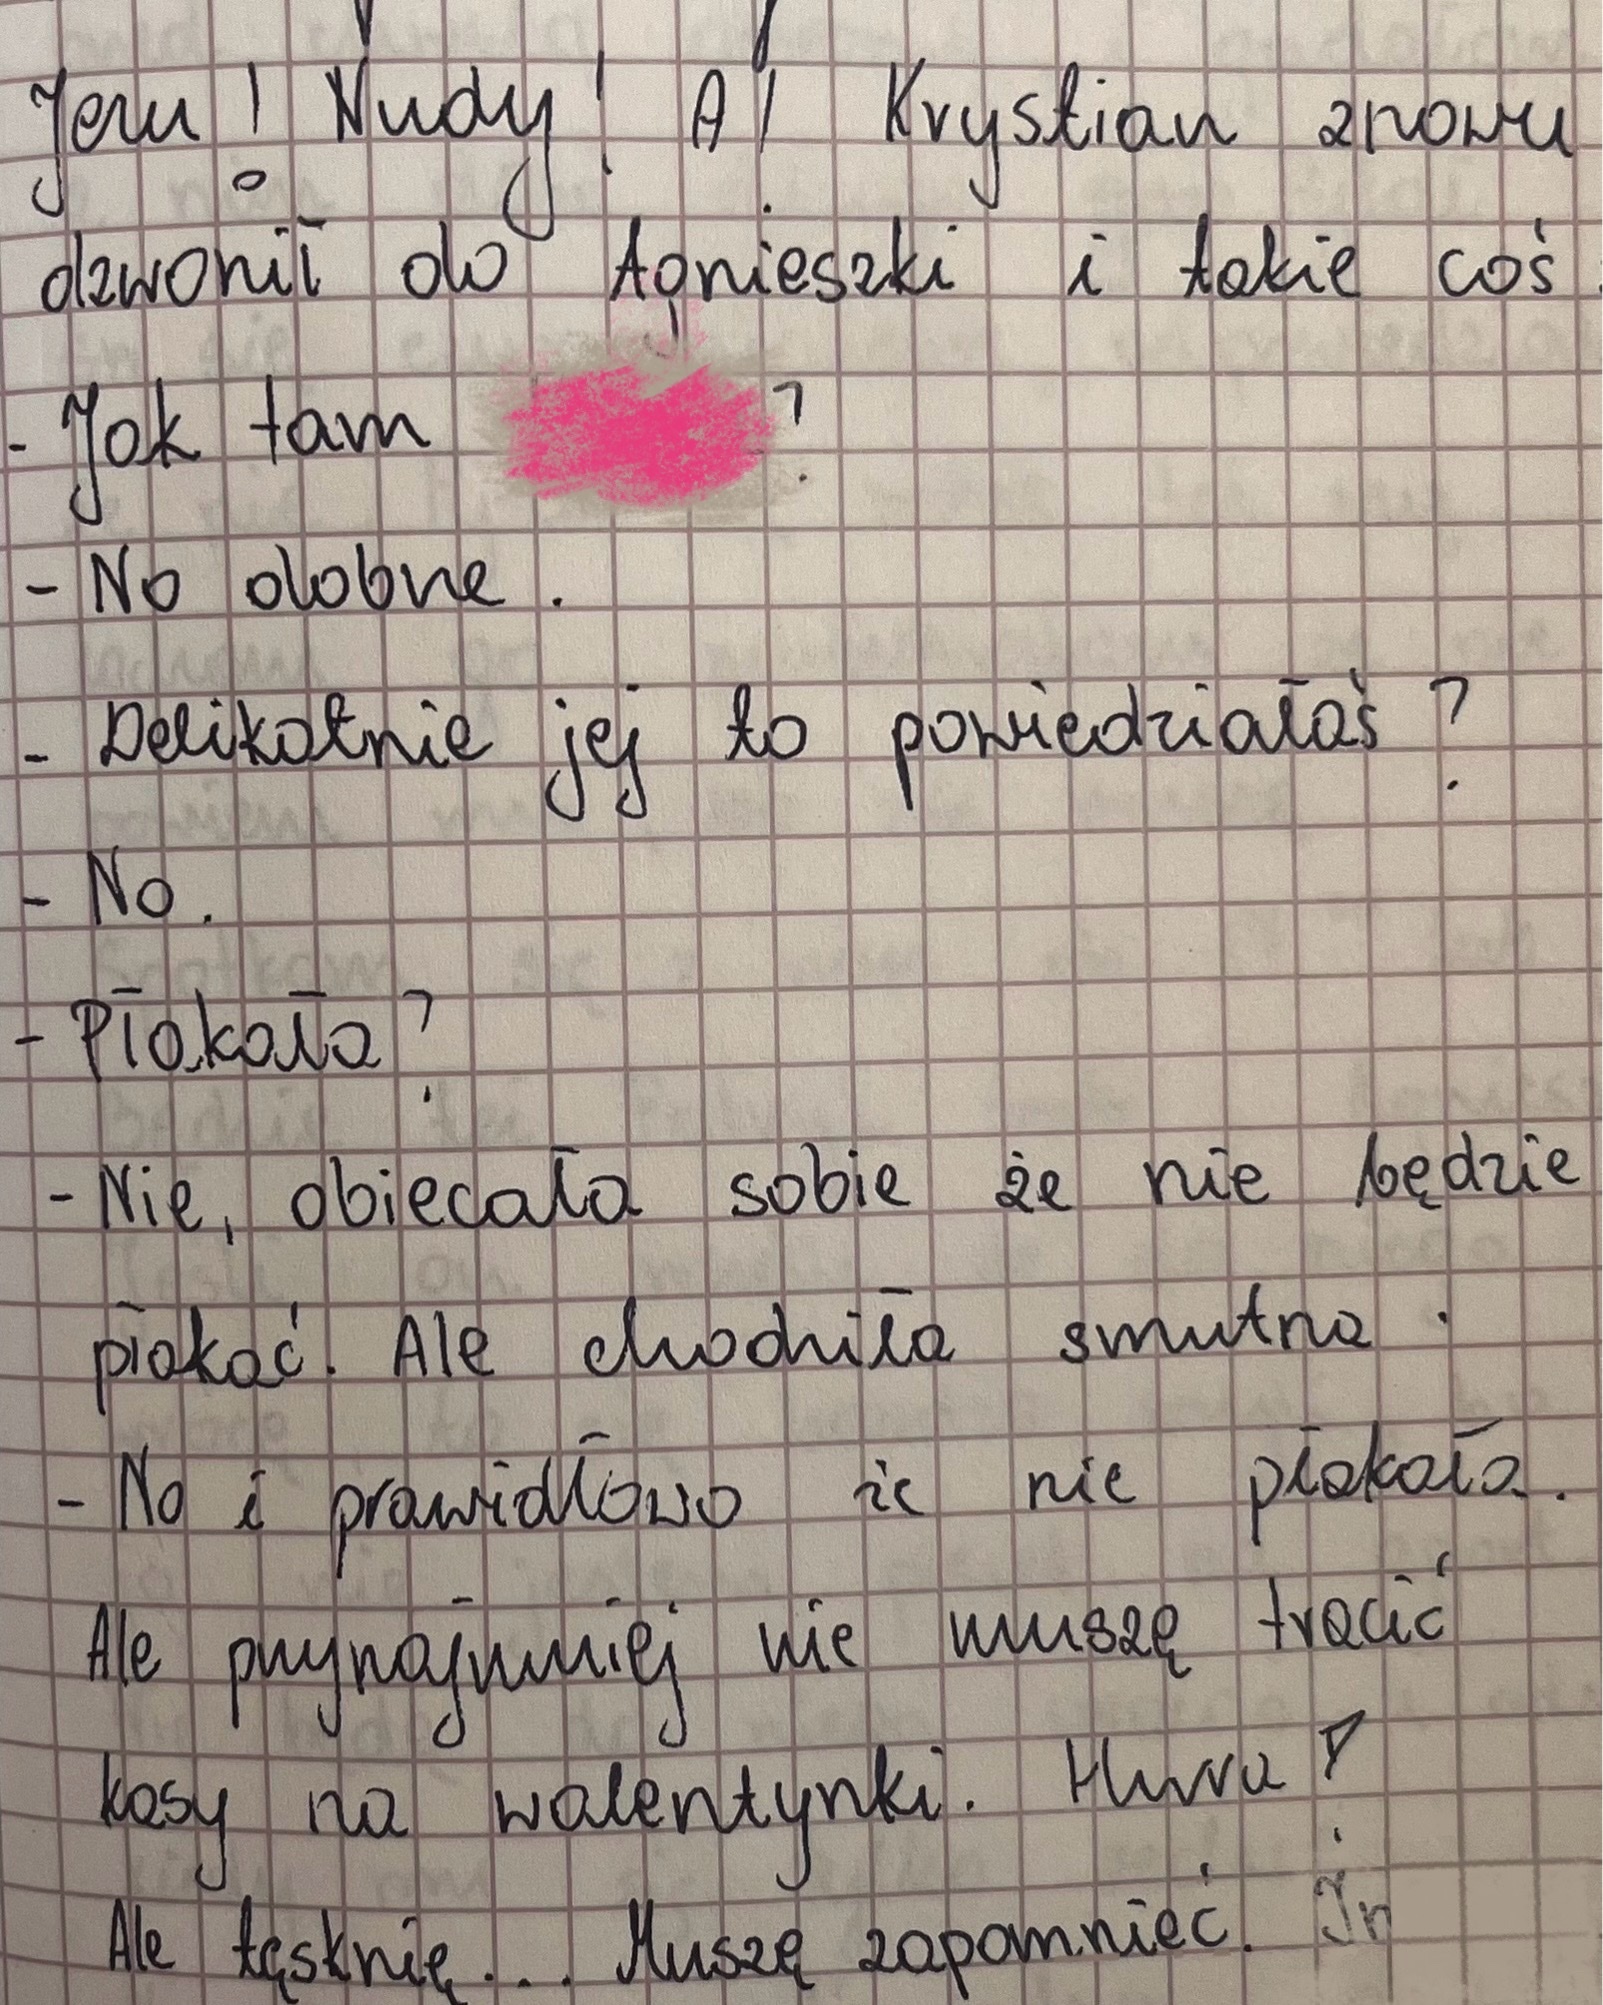 Jeru! Nudy! A! Krystian znowu
dzwonił do Agnieszki i takie coś:
- Jak tam ?
- No dobrze.
- Delikatnie jej to powiedziałaś?
- No.
- Płakała?
- Nie, obiecała sobie że nie będzie
płakać. Ale chodziła smutna.
- No i prawidłowo że nie płakała.
Ale przynajmniej nie muszę tracić
kasy na walentynki. Hurra!
Ale tęsknię... Muszę zapomnieć.